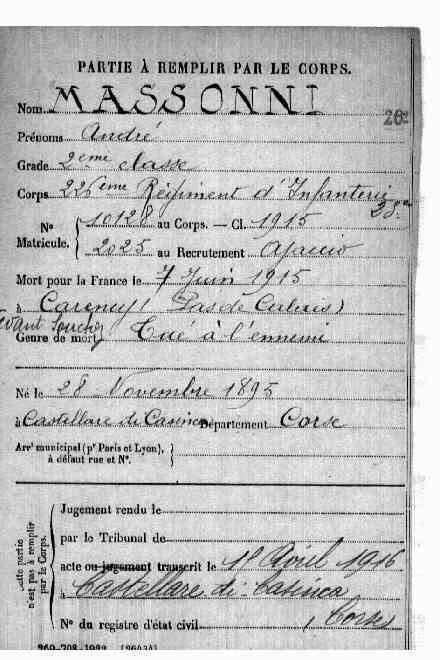 PARTIE À REMPLIR PAR LE CORPS.
Nom MASSONNI
26e
Prénoms André
Grade 2eme classe
Corps 226ème Régiment d'Infanterie
28e
N° Matricule. { 10128 au Corps. — Cl. 1915
2025 au Recrutement Ajaccio
Mort pour la France le 7 Juin 1915
à Carency (Pas de Calais)
devant Souchez
Genre de mort Tué à l'ennemi
Né le 28 Novembre 1895
à Castellare di Casinca Département Corse
Arrt municipal (pr Paris et Lyon), à défaut rue et N°. }
Cette partie n'est pas à remplir par le Corps.
Jugement rendu le
par le Tribunal de
acte ou jugement transcrit le Avril 1916
à Castellare di Casinca
Corse
N° du registre d'état civil